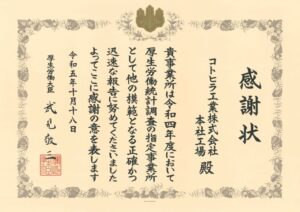 感謝状
コトヒラ工業株式会社
本社工場 殿
貴事業所は令和四年度において
厚生労働統計調査の指定事業所
として他の模範となる正確かつ
迅速な報告に努めてくださいました
よってここに感謝の意を表します
令和五年十月十八日
厚生労働大臣 武見敬三